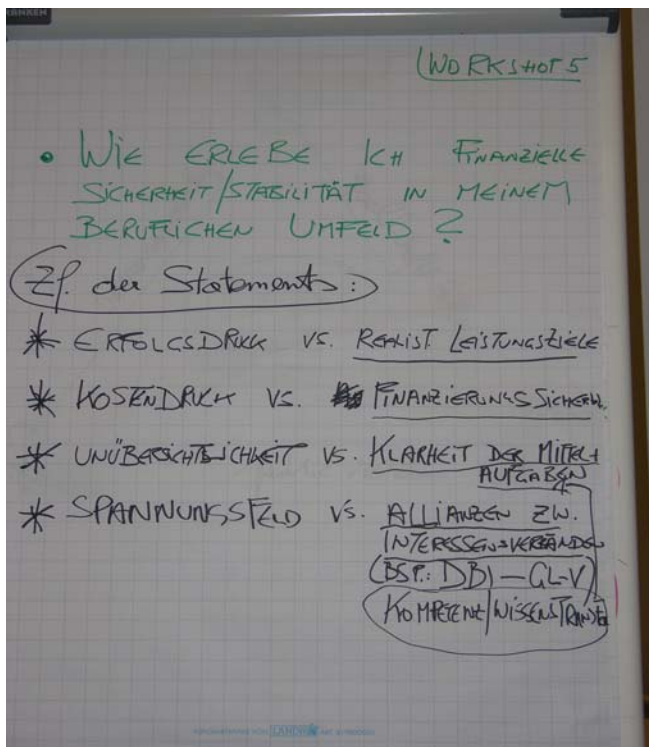 WORKSHOP 5
• WIE ERLEBE ICH FINANZIELLE
SICHERHEIT/STABILITÄT IN MEINEM
BERUFLICHEN UMFELD?
Zf. der Statements:
* ERFOLGSDRUCK VS. REALIST LEISTUNGSZIELE
* KOSENDRUCK VS. FINANZIERUNGSSICHERH.
* UNÜBERSICHTLICHKEIT VS. KLARHEIT DER MITTEL+
AUFGABEN
* SPANNUNGSFELD VS. ALLIANZEN ZW.
INTERESSENSVERBÄNDEN
(BSP.: DB) – GL-V
KOMPETENZ/WISSENSTRANSFER
LANDRÉ